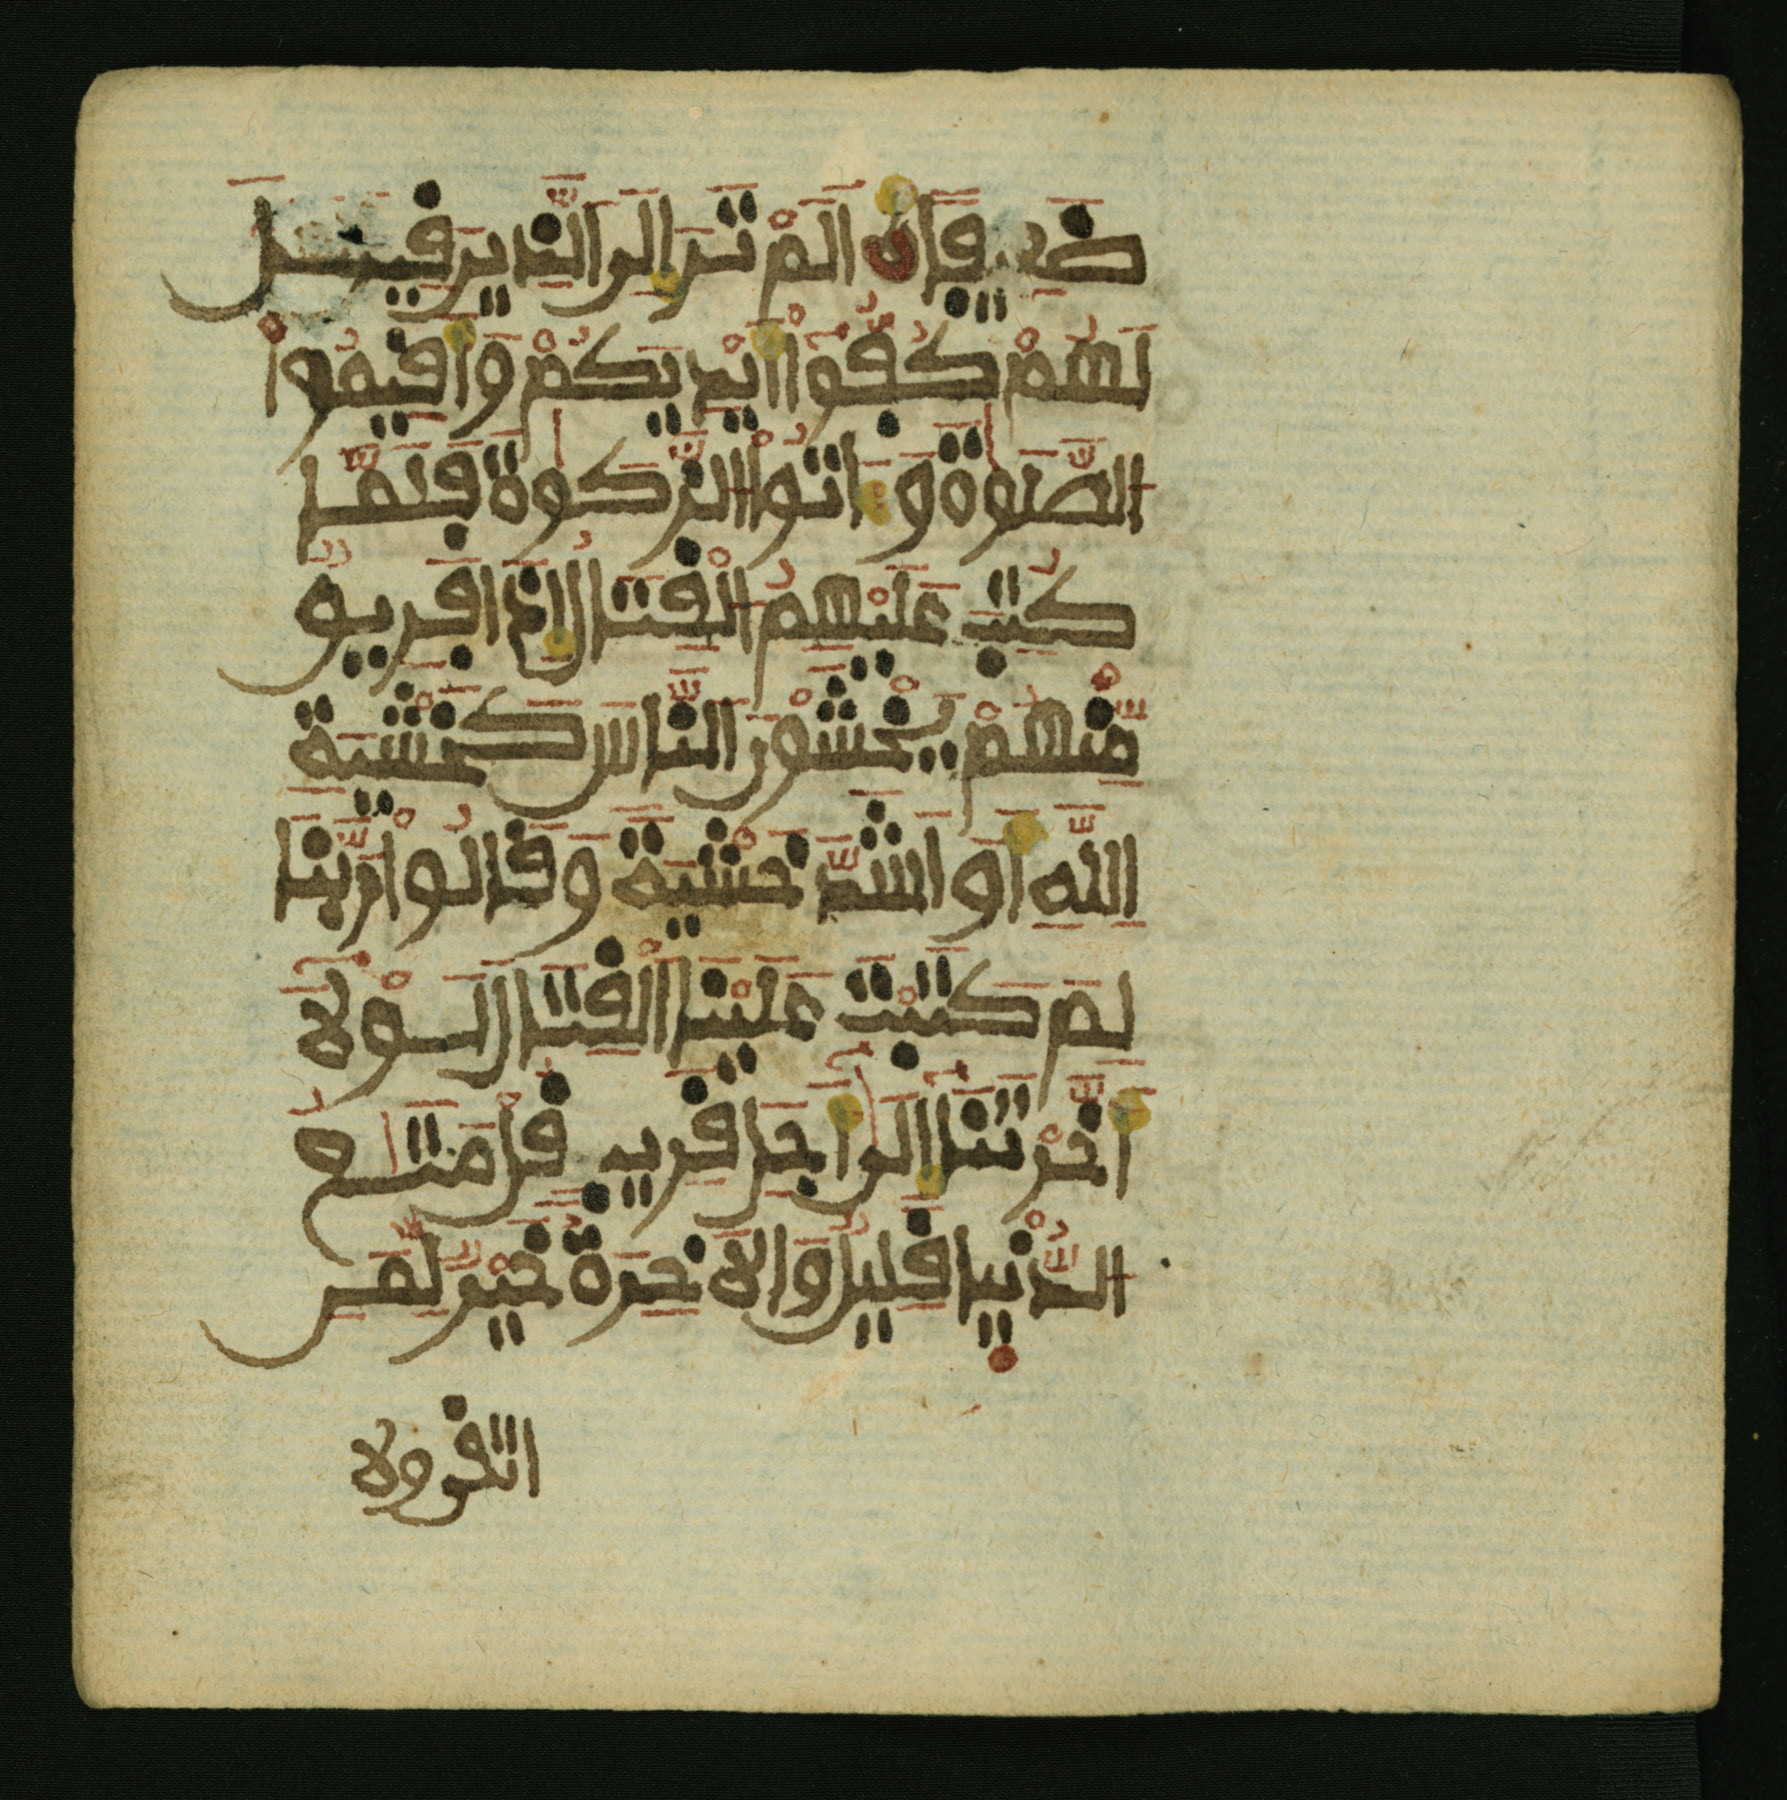 ضَعِيفًا اَلَمْ تَرَ إِلَى اَلَّذِينَ قِيلَ
لَهُمْ كُفُّوٓاْ أَيْدِيَكُمْ وَأَقِيمُواْ
اُلصَّلَوٰةَ وَءَاتُواْ اُلزَّكَوٰةَ فَلَمَّا
كُتِبَ عَلَيْهِمُ اُلْقِتَالُ إِذَا فَرِيقٌ
مِّنْهُمْ يَخْشَوْنَ اَلنَّاسَ كَخَشْيَةِ
اِللَّهِ أَوَ اَشَدَّ خَشْيَةً وَقَالُواْ رَبَّنَا
لِمَ كَتَبْتَ عَلَيْنَا اَلْقِتَالَ لَوْلَآ
أَخَّرْتَنَآ إِلَىٰٓ أَجَلٍ قَرِيبٍ قُلْ مَتَٰعُ
اُلدُّنْيَا قَلِيلٌ وَالَاخِرَةُ خَيْرٌ لِّمَنِ
اتقى ولا